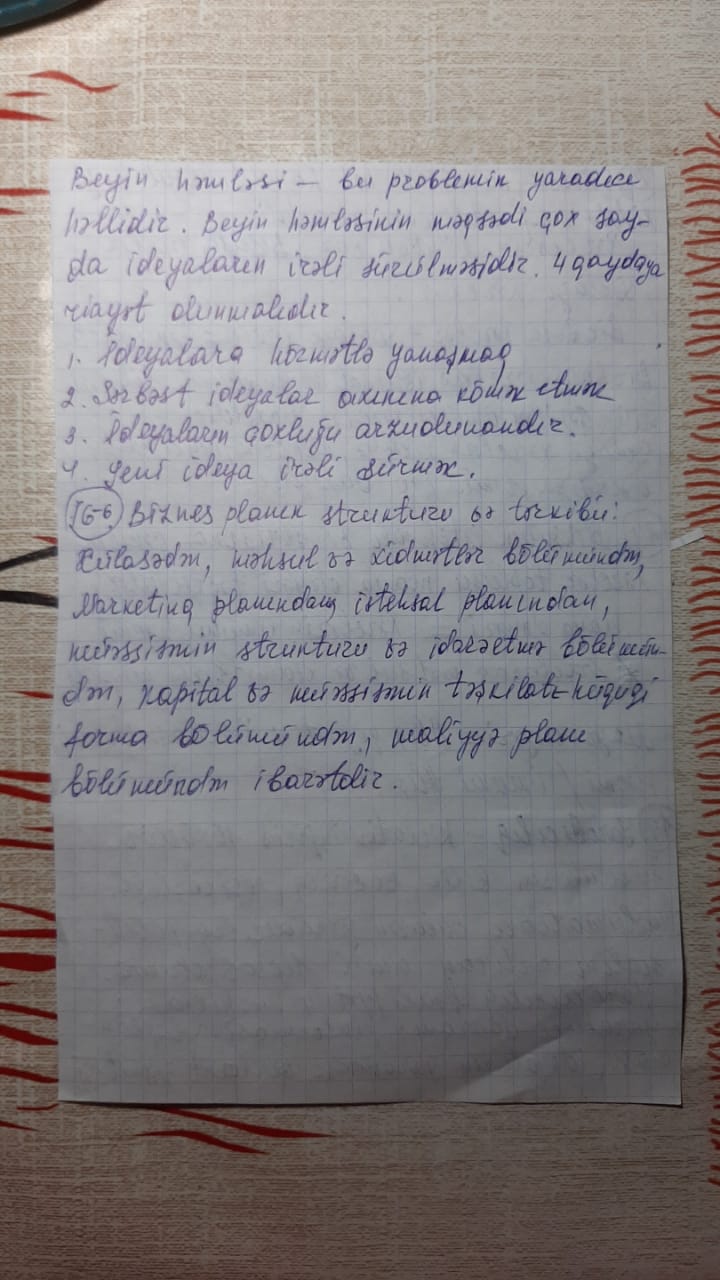 Beyin həmləsi – bu problemin yaradıcı
həllidir. Beyin həmləsinin məqsədi çox say-
da ideyaların irəli sürülməsidir. 4 qaydaya
riayət olunmalıdır.
1. İdeyalara hörmətlə yanaşmaq
2. Sərbəst ideyalar axınına kömək etmək
3. İdeyaların çoxluğu arzuolunandır.
4. Yeni ideya irəli sürmək.
I6-6. Biznes planın strukturu və tərkibi:
Xülasədən, məhsul və xidmətlər bölümündən,
Marketinq planından, istehsal planından,
müəssisənin strukturu və idarəetmə bölümün-
dən, kapital və müəssisənin təşkilati-hüquqi
forma bölümündən, maliyyə planı
bölümündən ibarətdir.